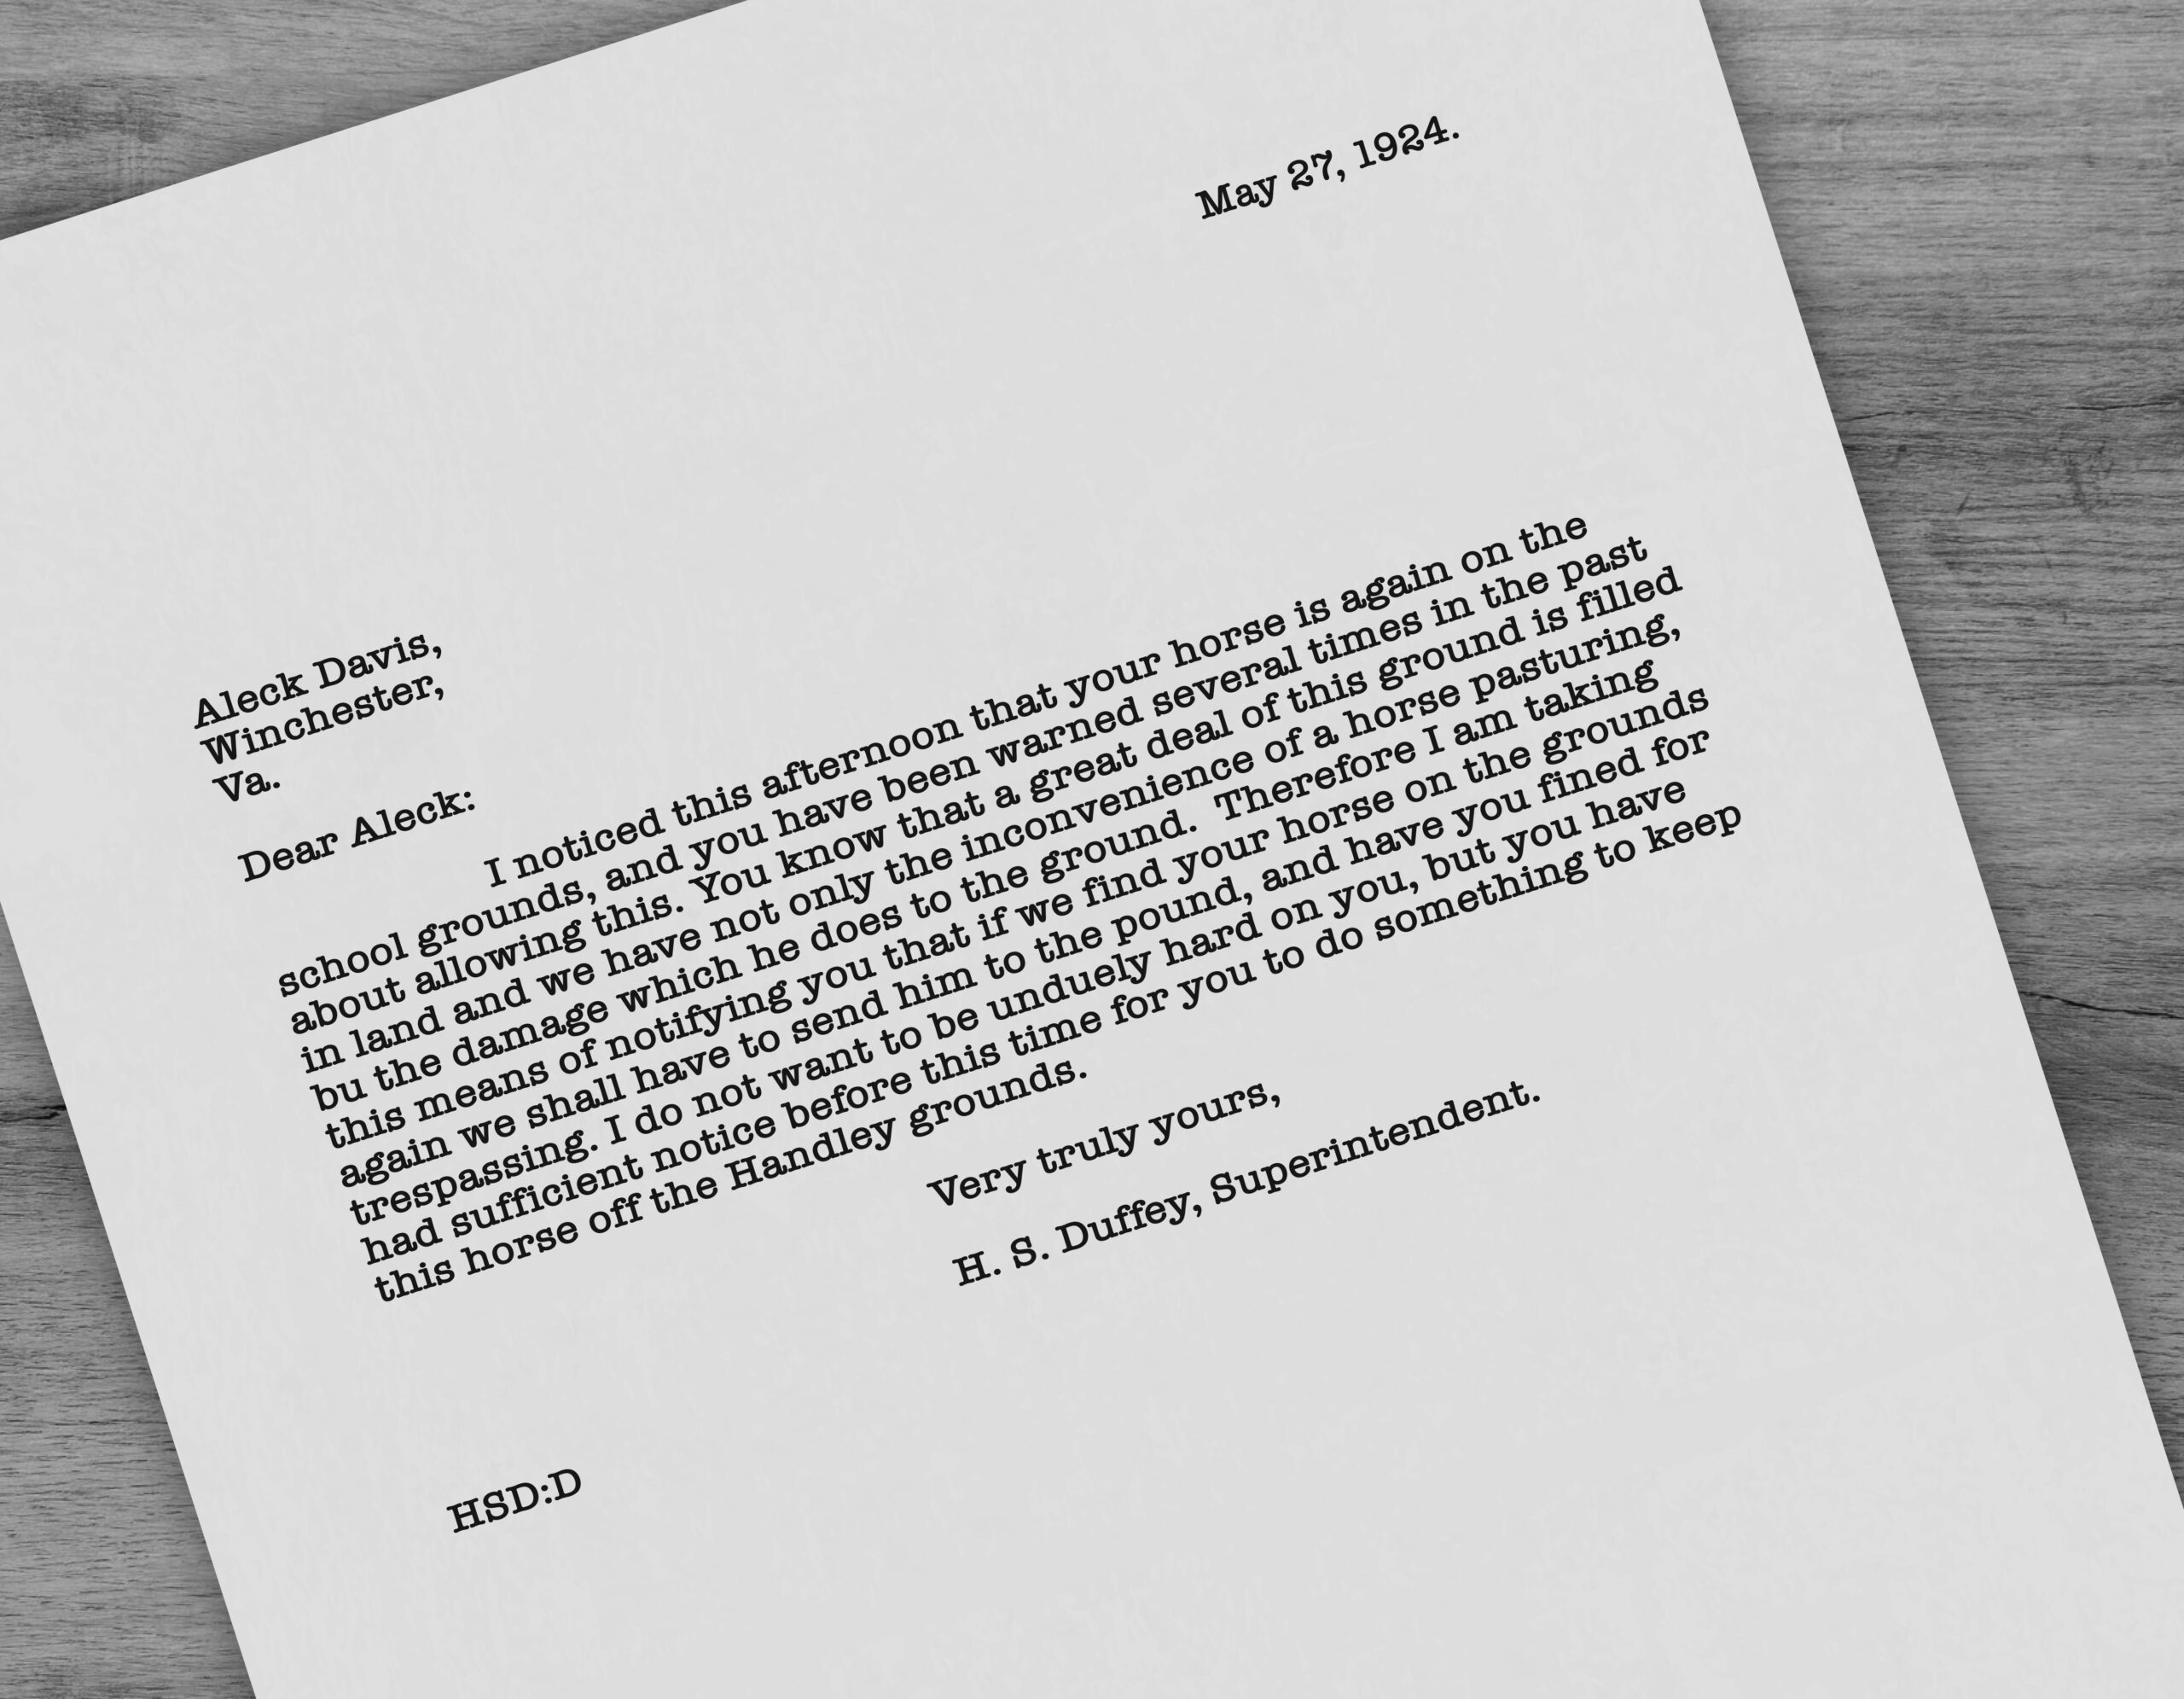 May 27, 1924.
Aleck Davis,
Winchester,
Va.
Dear Aleck:
I noticed this afternoon that your horse is again on the
school grounds, and you have been warned several times in the past
about allowing this. You know that a great deal of this ground is filled
in land and we have not only the inconvenience of a horse pasturing,
bu the damage which he does to the ground. Therefore I am taking
this means of notifying you that if we find your horse on the grounds
again we shall have to send him to the pound, and have you fined for
trespassing. I do not want to be unduely hard on you, but you have
had sufficient notice before this time for you to do something to keep
this horse off the Handley grounds.
Very truly yours,
H. S. Duffey, Superintendent.
HSD:D